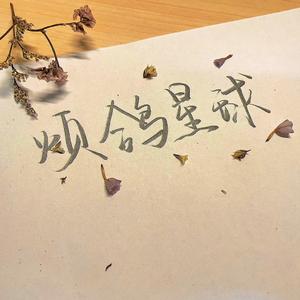 烦鸽星球